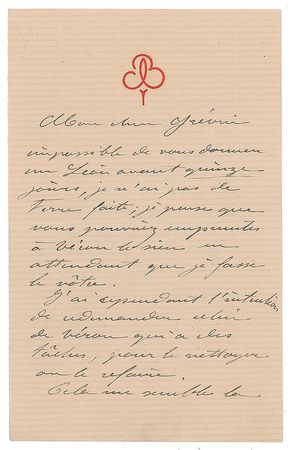 Mon cher Grévin
impossible de vous donner
un Léon avant quinze
jours, je n'ai pas de
terre faite; je pense que
vous pourriez emprunter
à Véron le sien en
attendant que je fasse
le vôtre.
J'ai cependant l'intention
de redemander celui
de Véron qui a des
tâches, pour le nettoyer
ou le refaire.
Cela me semble la